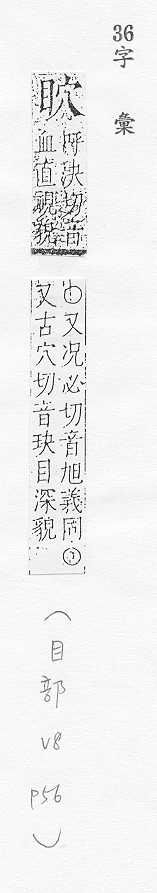 36字 彙
䀗
呼決切音
血直視貌
①又况必切音旭義同①
又古穴切音玦目深貌
（目部 V8 P56）